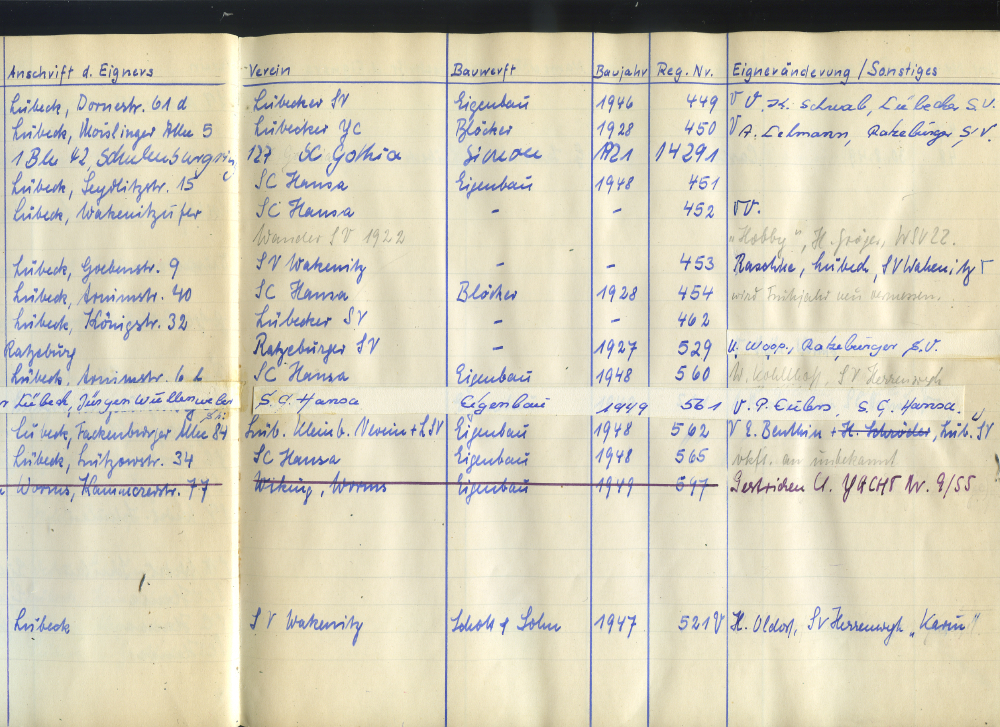 Anschrift d. Eigners Verein Bauwerft Baujahr Reg. Nr. Eigneränderung / Sonstiges
Lübeck, Dornestr. 61 d Lübecker SV Eigenbau 1946 449 V V. K. Schwab, Lübecker S.V.
Lübeck, Moislinger Allee 5 Lübecker YC Blöcker 1928 450 V A. Lelmann, Ratzeburger S.V.
1 Bln 42, Schulenburgring 127 SC Gothia 1921 14291
Lübeck, Seydlitzstr. 15 SC Hansa Eigenbau 1948 451
Lübeck, Wakenitzufer SC Hansa - - 452 VV.
Wander SV 1922 "Hobby", H. Gröger, WSV22.
Lübeck, Goebenstr. 9 SV Wakenitz - - 453 Raschke, Lübeck, SV Wakenitz
Lübeck, Arnimstr. 40 SC Hansa Blöcker 1928 454 wird Frühjahr neu vermessen.
Lübeck, Königstr. 32 Lübecker SV - - 462
Ratzeburg Ratzeburger SV - 1927 529 Ratzeburger S.V.
Lübeck, Arnimstr. 6 b SC Hansa Eigenbau 1948 560 W. Kohlhoff, SV Herrenwyk
Lübeck, Jürgen Wullenweber S.C. Hansa Eigenbau 1949 561 V. P. Ehlers, S.C. Hansa.
Lübeck, Fackenburger Allee 84 Lüb. Kleinb. Verein + LSV Eigenbau 1948 562 V E. Benthin + H. Schröder, Lüb. SV
Lübeck, Lützowstr. 34 SC Hansa Eigenbau 1948 565 vkft. an unbekannt
Worms, Kämmererstr. 77 Wiking, Worms Eigenbau 1949 597 Gestrichen lt. YACHT Nr. 9/55
Lübeck SV Wakenitz & Sohn 1947 521 V H. Oldorf, SV Herrenwyk "Karin"